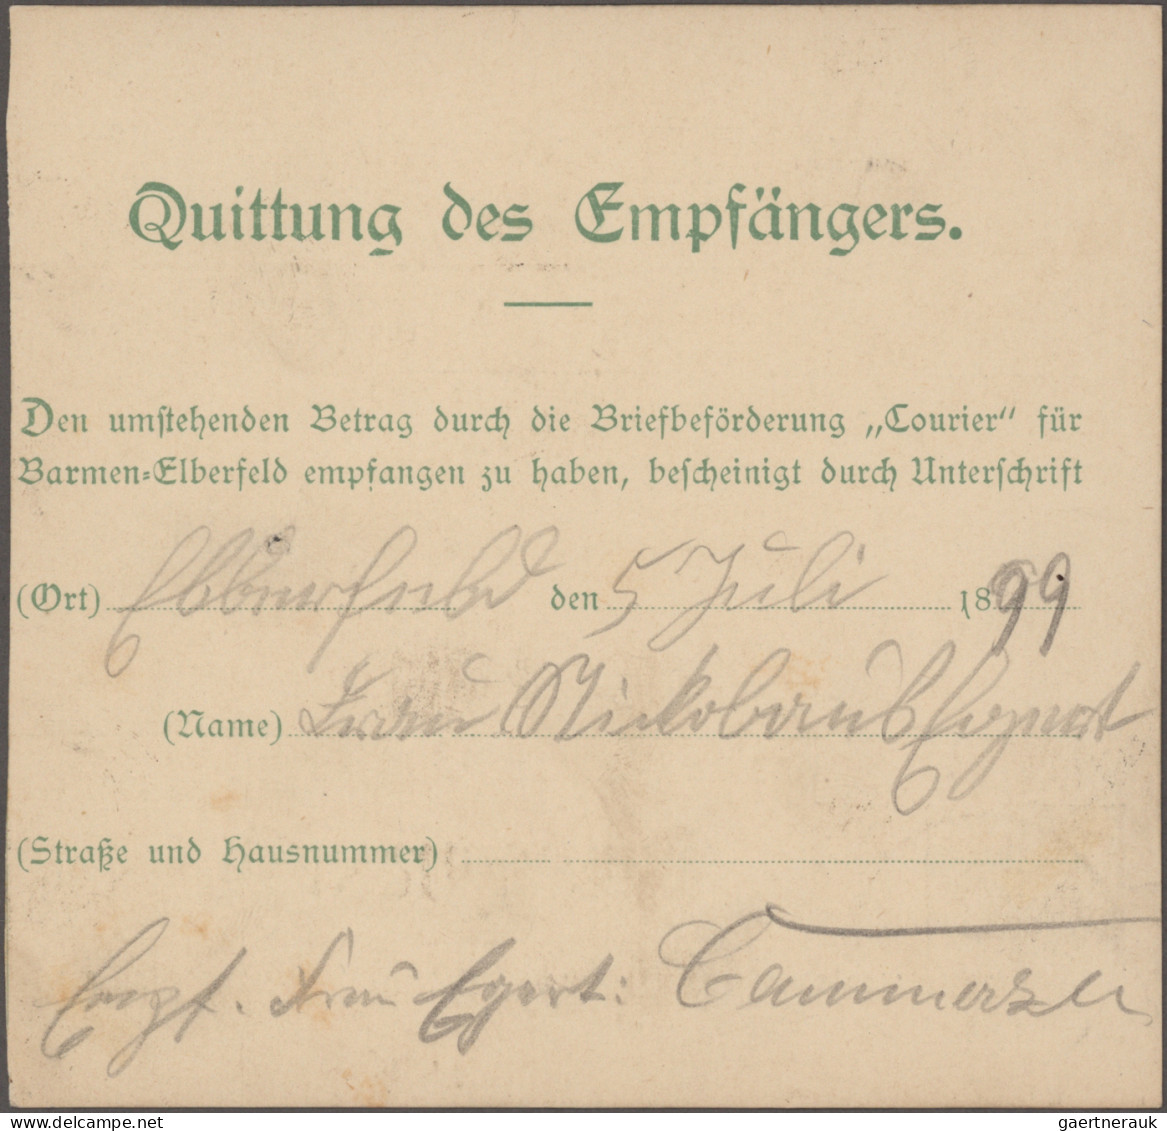 Quittung des Empfängers.
Den umstehenden Betrag durch die Briefbeförderung „Courier" für
Barmen-Elberfeld empfangen zu haben, bescheinigt durch Unterschrift
(Ort) Elberfeld den 5 Juli 1899
(Name) Frau Egert
(Straße und Hausnummer)
Empf. Frau Egert:
www.delcampe.net
gaertnerauk